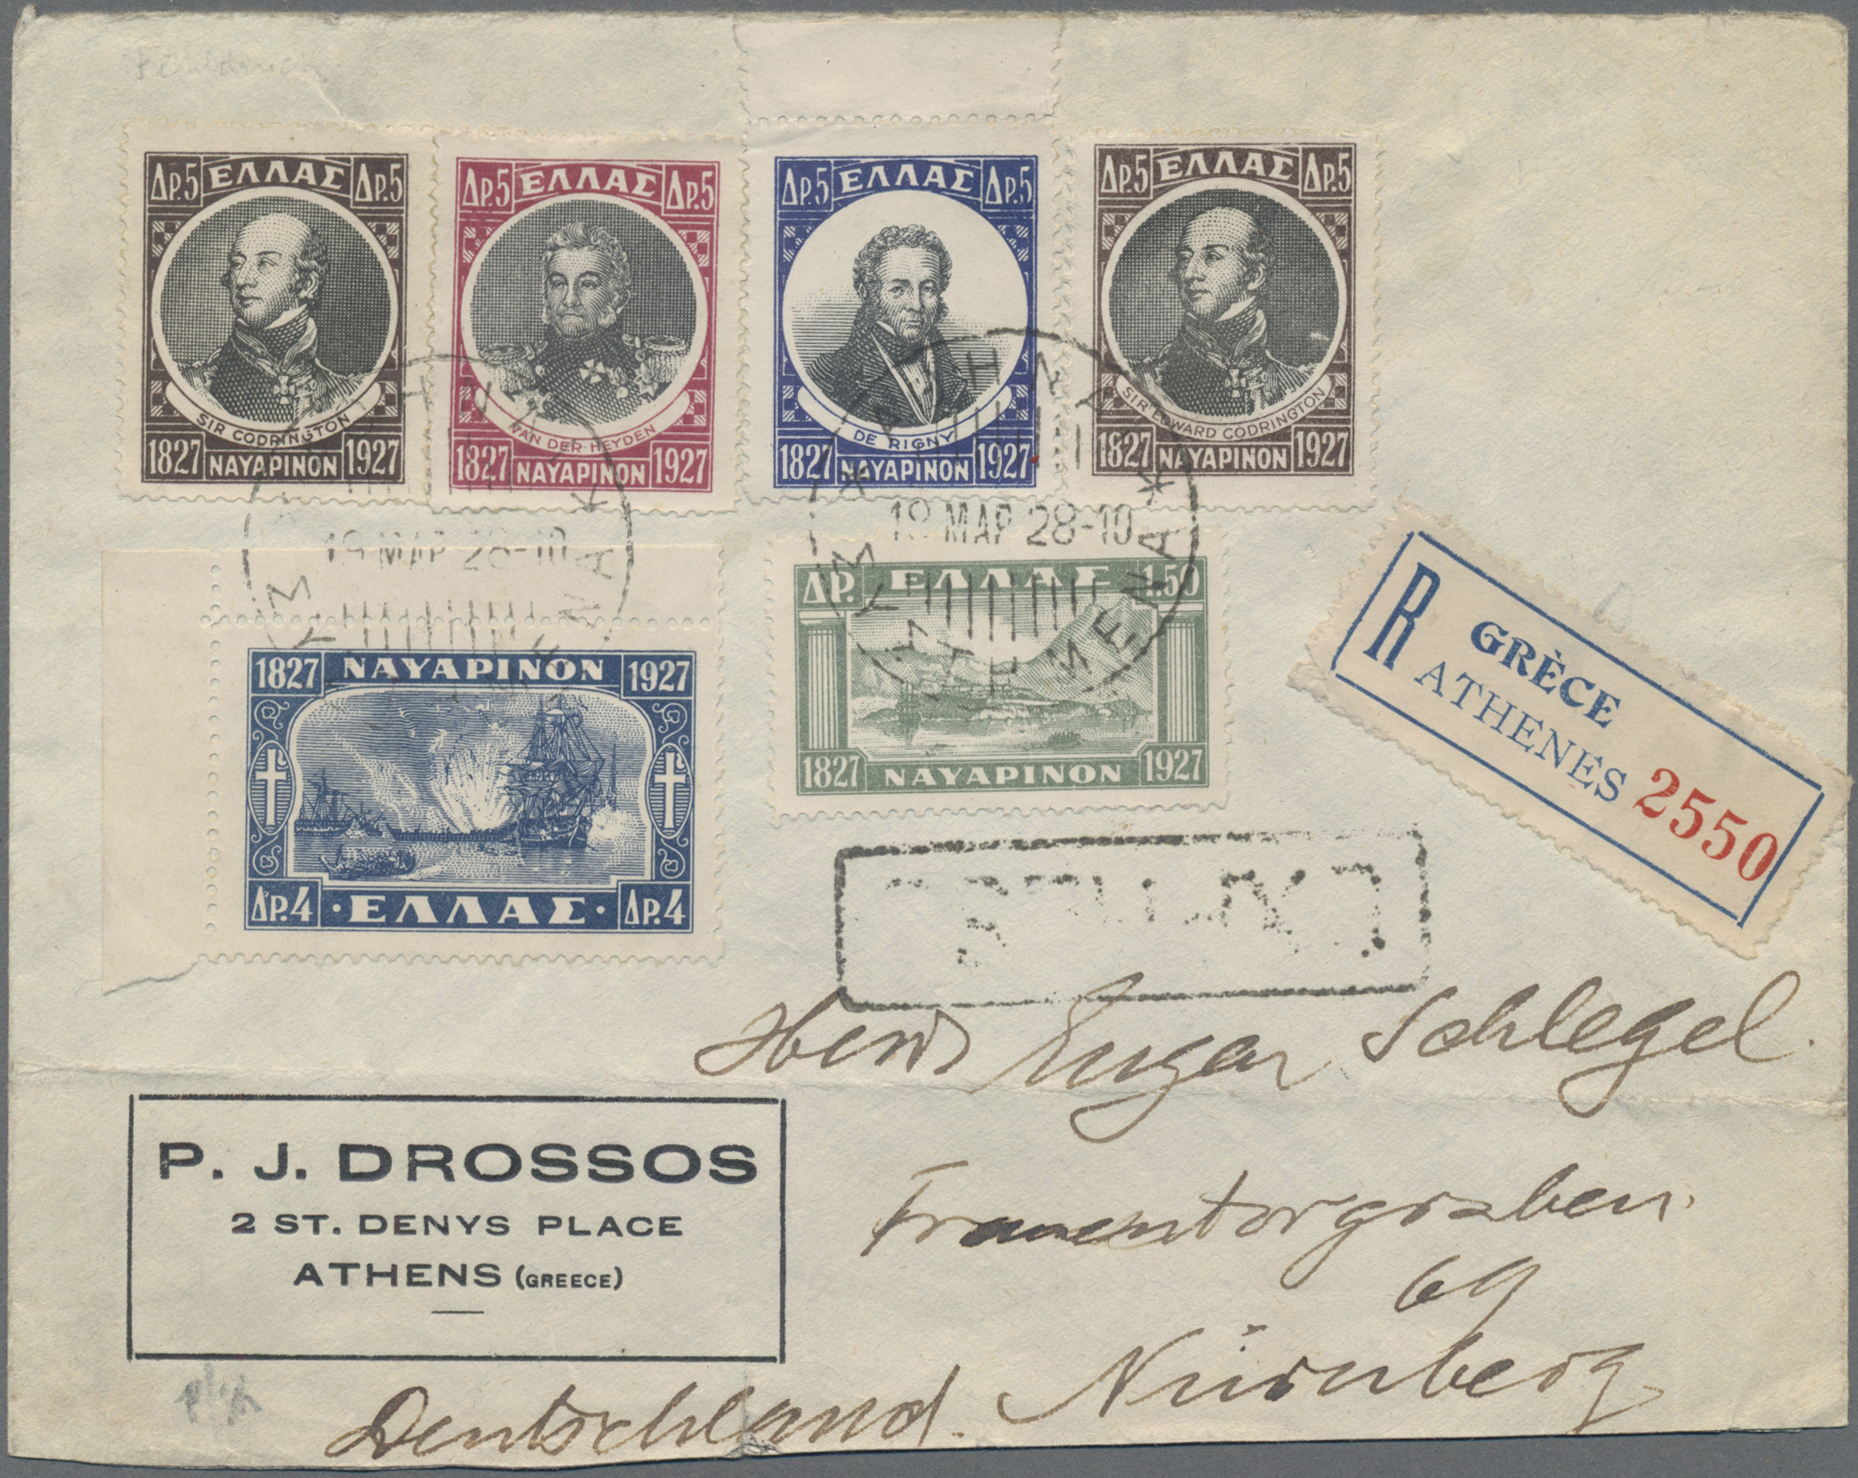 ΔΡ.5 ΕΛΛΑΣ ΔΡ.5
SIR CODRINGTON
1827 ΝΑΥΑΡΙΝΟΝ 1927
ΔΡ.5 ΕΛΛΑΣ ΔΡ.5
VAN DER HEYDEN
1827 ΝΑΥΑΡΙΝΟΝ 1927
ΔΡ.5 ΕΛΛΑΣ ΔΡ.5
DE RIGNY
1827 ΝΑΥΑΡΙΝΟΝ 1927
ΔΡ.5 ΕΛΛΑΣ ΔΡ.5
SIR EDWARD CODRINGTON
1827 ΝΑΥΑΡΙΝΟΝ 1927
ΜΑΡ 28-10
ΑΘΗΝΑΙ
ΜΑΡ 28-10
1827 ΝΑΥΑΡΙΝΟΝ 1927
ΔΡ.4 ·ΕΛΛΑΣ· ΔΡ.4
ΔΡ. ΕΛΛΑΣ 1.50
1827 ΝΑΥΑΡΙΝΟΝ 1927
R GRÈCE
ATHENES 2550
Herrn Eugen Schlegel.
P. J. DROSSOS
2 ST. DENYS PLACE
ATHENS (GREECE)
Frauentorgraben.
69
Nürnberg
Deutschland.